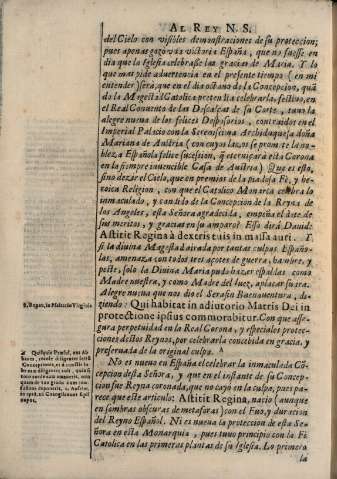 AL REY N. S.
del Cielo con visibles demonstraciones de su proteccion;
pues apenas gozò vna victoria España, que no fuesse en
dia que la Iglesia celebrasse las gracias de Maria. Y lo
que mas pide advertencia en el presente tiempo (en mi
entender) serà, que en el dia octavo de la Concepcion, quã
do la Magestad Catolica precen celebrarla, festivo, en
el Real Convento de las Descalças de su Corte, tuvo la
alegre nueva de los felices Desposorios, contraidos en el
Imperial Palacio con la Serenissima Archiduquesa doña
Mariana de Austria (con cuyos laços se promete la no-
bleza Española felice sucession, q̃ eternizarà esta Corona
en la siempre invencible Casa de Austria) Que es esto,
sino dezir el Cielo, que en premios de la piadosa Fè, y he-
roica Religion, con que el Catolico Monarca celebra lo
inmaculado, y candido de la Concepcion de la Reyna de
los Angeles, esta Señora agradecida, empeña el arte de
sus meritos, y gracias en su amparo? Esso dirà David:
Astitit Regina à dextris tuis in massa auri. Y
si la divina Magestad airada por tantas culpas Españo-
las, amenaza con todos tres açotes de guerra, hambre, y
peste, solo la Divina Maria pudo hazer espaldas como
Madre nuestra, y como Madre del Iuez, aplacar su ira.
Alegre nueva que nos diò el Serafin Buenaventura, di-
ziendo: Qui habitat in adiutorio Matris Dei in
protectione ipsius commorabitur. Con que asse-
gura perpetuidad en la Real Corona, y especiales protec-
ciones destos Reynos, por celebrarla concebida en gracia, y
preservada de la original culpa.
No es nuevo en España celebrar la inmaculada Cõ-
cepcion desta Señora, y que en el instante de su Concep-
cion fue Reyna coronada, que no cayo en la culpa, pues pa-
rece que este articulo: Astitit Regina, naciò (aunque
en sombras obscuras de metaforas) con el Fuo, y duracion
del Reyno Español. Ni es nueva la proteccion de esta Se-
ñora en esta Monarquia, pues tuvo principio con la Fè
Catolica en las primeras plantas de su Iglesia. Lo primero
la
S. Bonav. in Psalterio Virginis